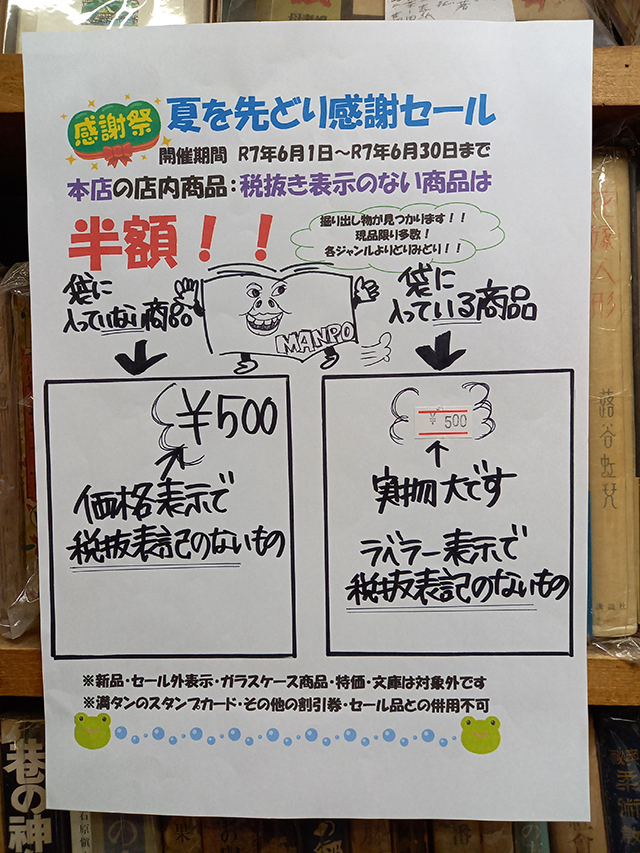 感謝祭
夏を先どり感謝セール
開催期間 R7年6月1日~R7年6月30日まで
本店の店内商品:税抜き表示のない商品は
半額!!
掘り出し物が見つかります!!
現品限り多数!
各ジャンルよりどりみどり!!
袋に
入っていない商品
袋に
入っている商品
MANPO
¥500
価格表示で
税抜表記のないもの
¥500
実物大です
ラベラー表示で
税抜表記のないもの
※新品・セール外表示・ガラスケース商品・特価・文庫は対象外です
※満タンのスタンプカード・その他の割引券・セール品との併用不可
人形
蕗谷虹児
講談社
巷の神